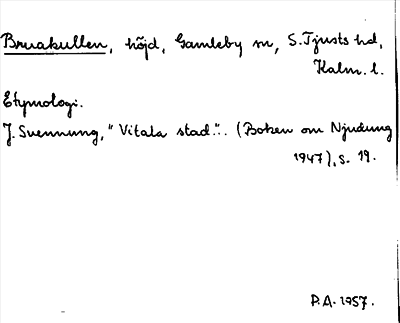 Bruakullen, höjd, Gamleby sn, S. Tjusts hd,
Kalm. l.
Etymologi.
J. Svennung, "Vitala stad".. (Boken om Njudung
1947), s. 19.
P.A. 1957.